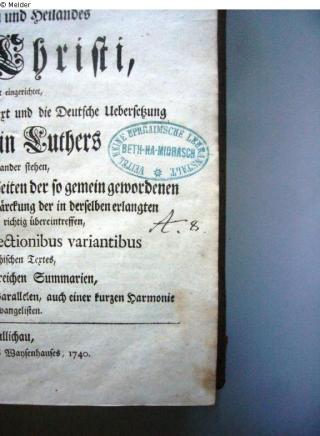 © Meider
und Heilandes
Christi,
eingerichtet,
und die Deutsche Uebersetzung
Luthers
ander stehen,
VEITEL HEINE EPHRAIMSCHE LEHRANSTALT
BETH-HA-MIDRASCH
der so gemein gewordenen
der in derselben erlangten
richtig übereintreffen,
A. 8.
lectionibus variantibus
Textes,
reichen Summarien,
Parallelen, auch einer kurzen Harmonie
vangelisten.
llichau,
Waysenhauses, 1740.